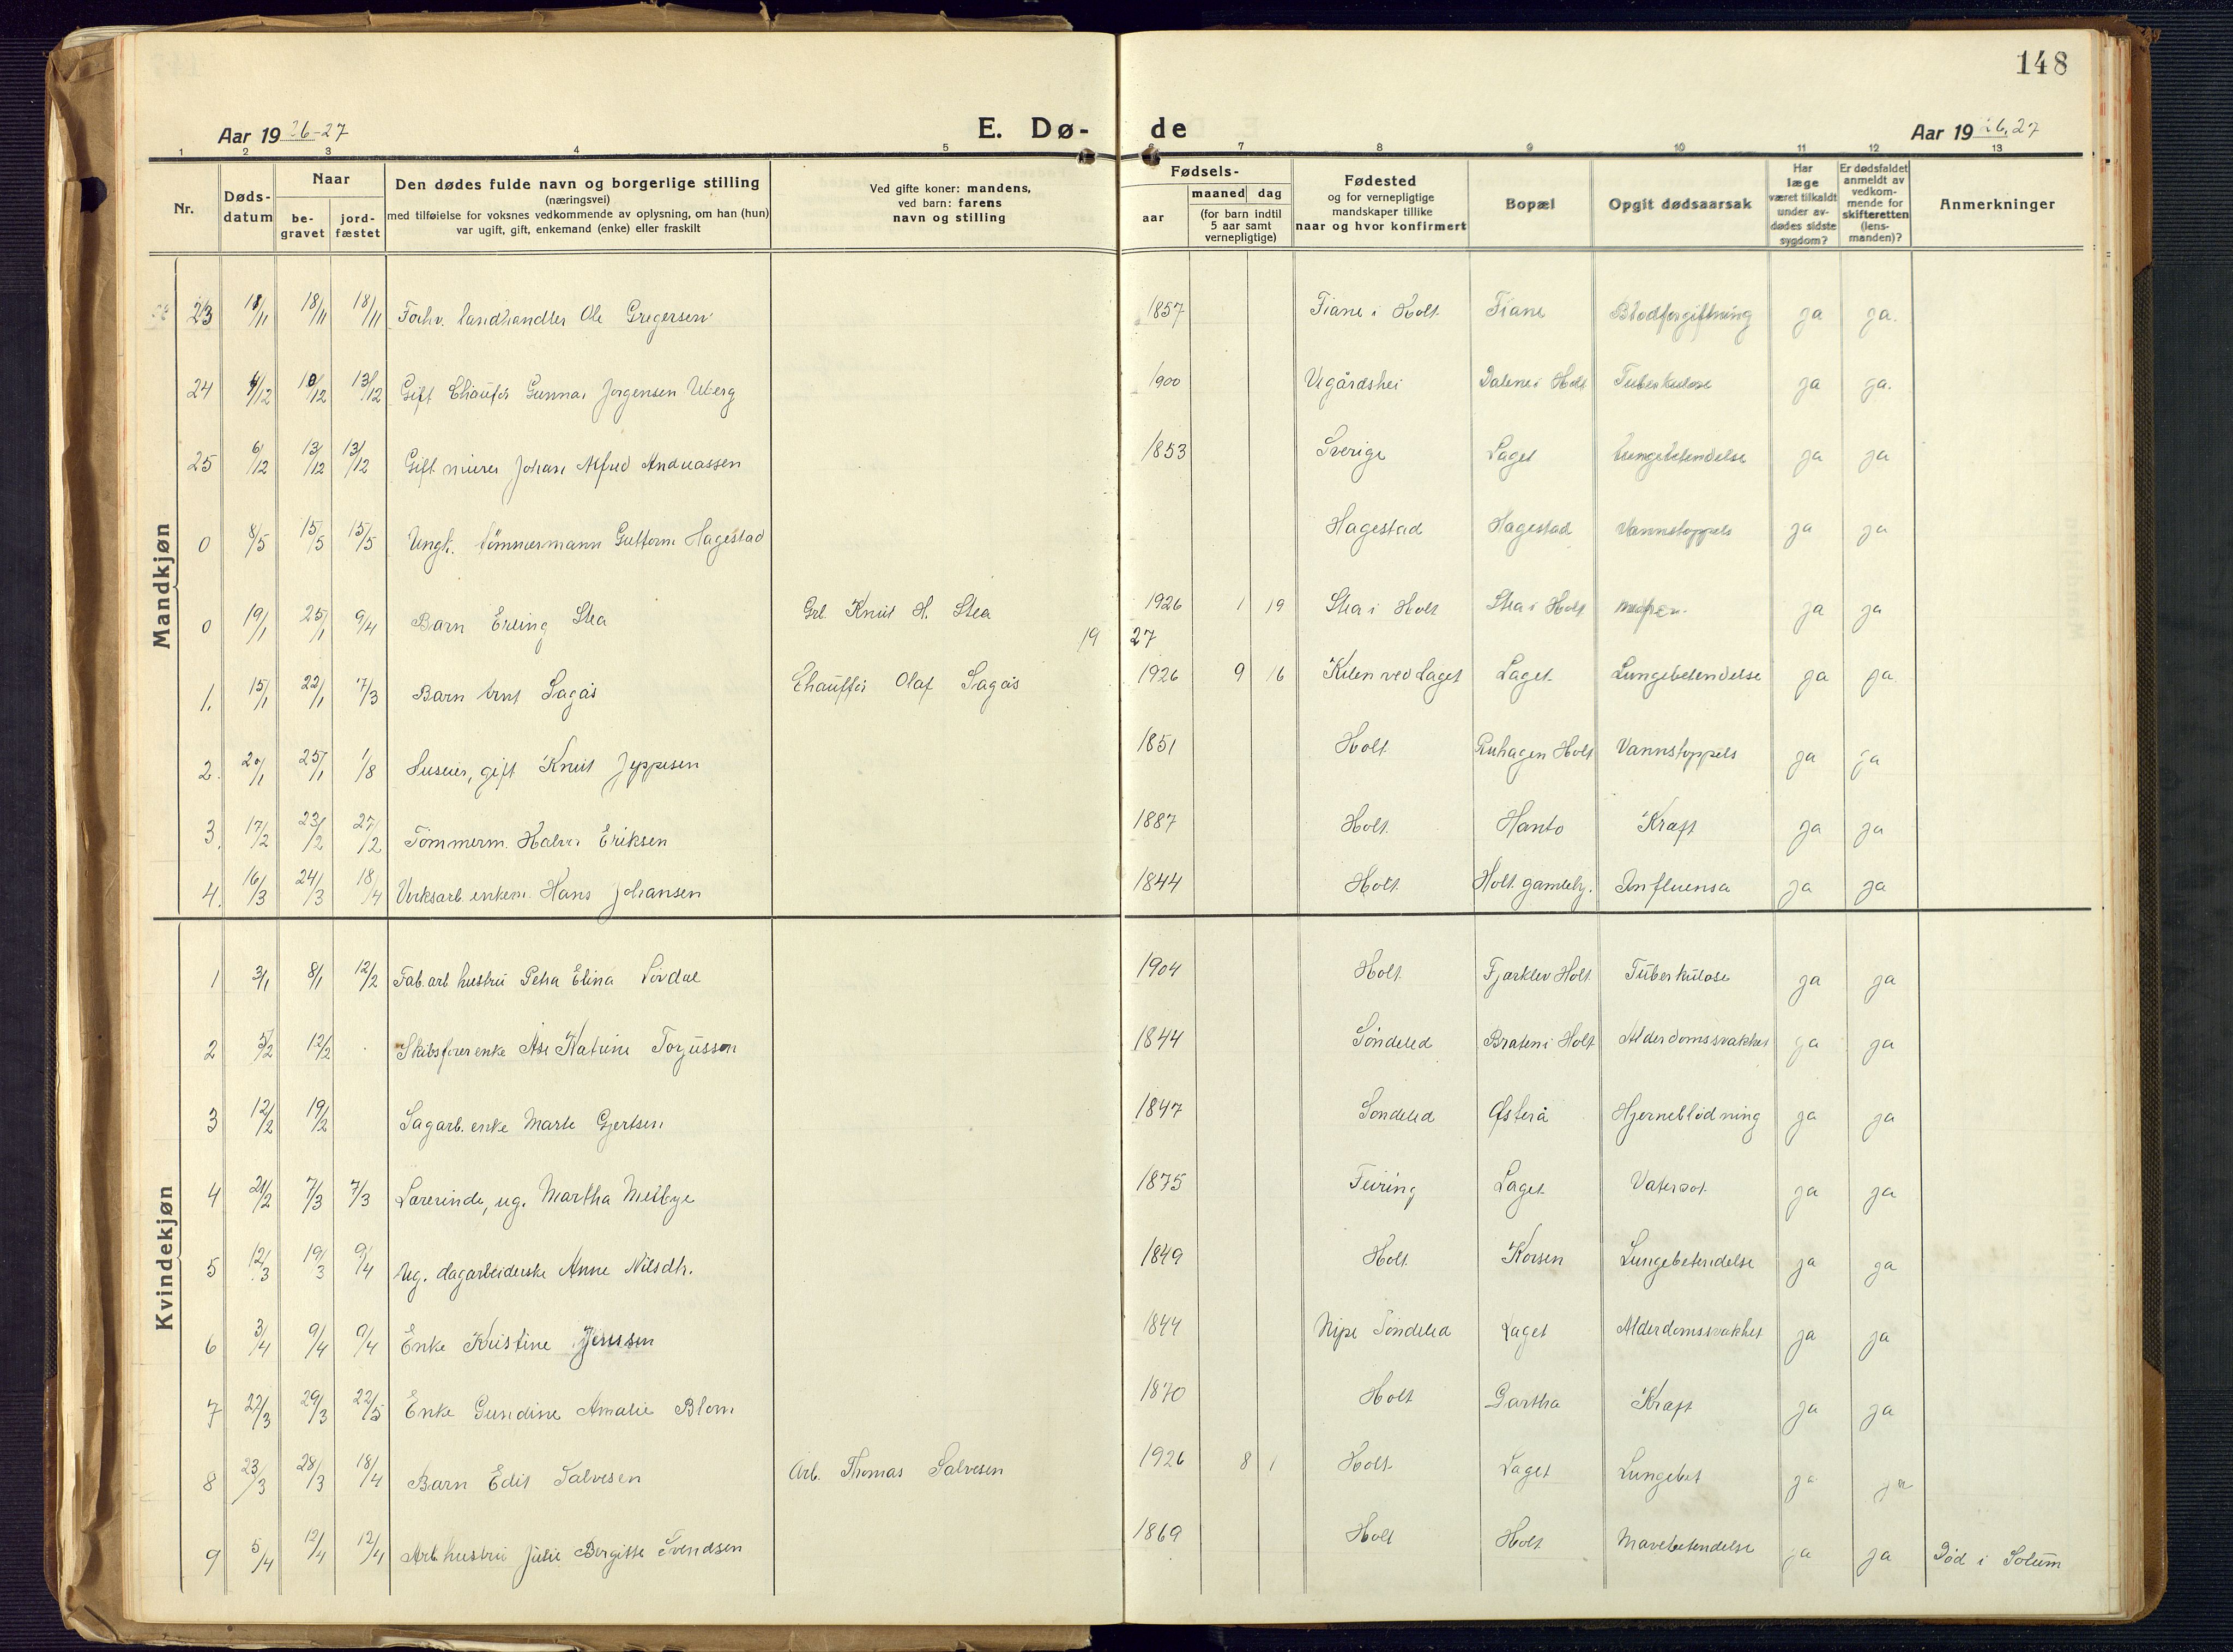 148
Aar 19 26-27 E. Dø- de Aar 19 26,27
1 2 3 4 5 6 7 8 9 10 11 12 13
Nr. Døds-datum Naar be-gravet jord-fæstet Den dødes fulde navn og borgerlige stilling (næringsvei) med tilføielse for voksnes vedkommende av oplysning, om han (hun) var ugift, gift, enkemand (enke) eller fraskilt Ved gifte koner: mandens, ved barn: farens navn og stilling Fødsels- aar maaned dag (for barn indtil 5 aar samt vernepligtige) Fødested og for vernepligtige mandskaper tillike naar og hvor konfirmert Bopæl Opgit dødsaarsak Har læge været tilkaldt under av-dødes sidste sygdom? Er dødsfaldet anmeldt av vedkom-mende for skifteretten (lens-manden)? Anmerkninger
Mandkjøn
23 11/11 18/11 18/11 Forhv. landhandler Ole Gregersen 1857 Fiane i Holt Fiane Blodforgiftning ja ja.
24 4/12 10/12 13/12 Gift Chaufør Gunnar Jørgensen Uberg 1900 Vegårdshei Dalene i Holt Tuberkulose ja ja.
25 6/12 13/12 13/12 Gift murer Johan Alfred Andreassen 1853 Sverige Laget Lungebetendelse ja ja
0 8/5 15/5 15/5 Ungk. tømmermann Guttorm Hagestad Hagestad Hagestad Vannstoppels ja ja
0 19/1 25/1 9/4 Barn Erling Stea Grb. Knut H. Stea 1926 1 19 Stea i Holt Stea i Holt ja ja
19 27
1. 15/1 22/1 7/3 Barn Arnt Lagås Chauffør Olaf Lagås 1926 9 16 Kilen ved Laget Laget Lungebetendelse ja ja
2. 20/1 25/1 1/8 Huseier, gift Knut Jeppesen 1851 Holt Holt Vannstoppels ja ja
3. 17/2 23/2 27/2 Tømmerm. Halvor Eriksen 1887 Holt Hanto Kræft ja ja
4. 16/3 24/3 18/4 Verksarb. enkem. Hans Johansen 1844 Holt Holt gamlehj. Influensa ja ja
Kvindekjøn
1 3/1 8/1 12/2 Fab.arb hustru Petra Elina Løvdal 1904 Holt Fjærklev Holt Tuberkulose ja ja
2 5/2 12/2 Skibsfører enke Åse Katrine Torjusson 1844 Søndeled Bråten i Holt Alderdomssvakhet ja ja
3 12/2 19/2 Sagarb. enke Marte Gjertsen 1847 Søndeled Østerå Hjerneblødning ja ja
4 21/2 7/3 7/3 Lærerinde, ug. Martha Melbye 1875 Feiring Laget Vatersot ja ja
5 12/3 19/3 9/4 Ug. dagarbeiderske Anne Nilsdtr. 1849 Holt Korsen Lungebetendelse ja ja
6 3/4 9/4 9/4 Enke Kristine Jenssen 1844 Nipe Søndeled Laget Alderdomssvakhet ja ja
7 22/3 29/3 22/5 Enke Gundine Amalie Blom 1870 Holt Gartha Kræft ja ja
8 23/3 28/3 18/4 Barn Edit Salvesen Arb. Thomas Salvesen 1926 8 1 Holt Laget Lungebet ja ja
9 5/4 12/4 12/4 Arb. hustru Julie Birgitte Svendsen 1869 Holt Holt Mavebetendelse ja ja Død i Solum